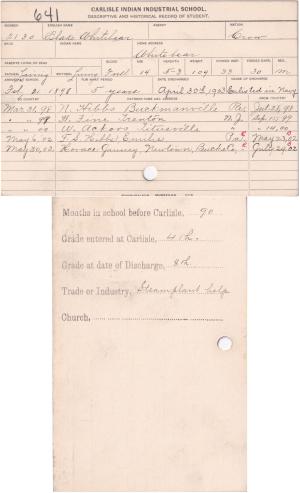 641
CARLISLE INDIAN INDUSTRIAL SCHOOL.
DESCRIPTIVE AND HISTORICAL RECORD OF STUDENT.
NUMBER ENGLISH NAME NATION
2130 Blake Whitebear Crow
BAND INDIAN NAME HOME ADDRESS
Whitebear
PARENTS LIVING OR DEAD BLOOD AGE HEIGHT WEIGHT
FATHER, Living MOTHER, Living Full 14 5-3 104 33 30 m
ARRIVED AT SCHOOL FOR WHAT PERIOD DATE DISCHARGED CAUSE OF DISCHARGE
Feb 21 1898 5 years April 30th, 1903 Enlisted in Navy
TO COUNTRY PATRONS NAME AND ADDRESS FROM COUNTRY
Mar 31, 98 N. Hibbs Buckmanville Pa.
" 99 H. Fine Trenton N.J. Sep. 11, 99
" " 00 W. Titusville " " 14, 00
May 6, 02 Emilie Pa. May 23, 02
May 30, 02 Horace Newtown, Bucks Co. July 24, 02
Months in school before Carlisle, 90
Grade entered at Carlisle, 4th.
Grade at date of Discharge, 8th
Trade or Industry, Steamplant help
Church,